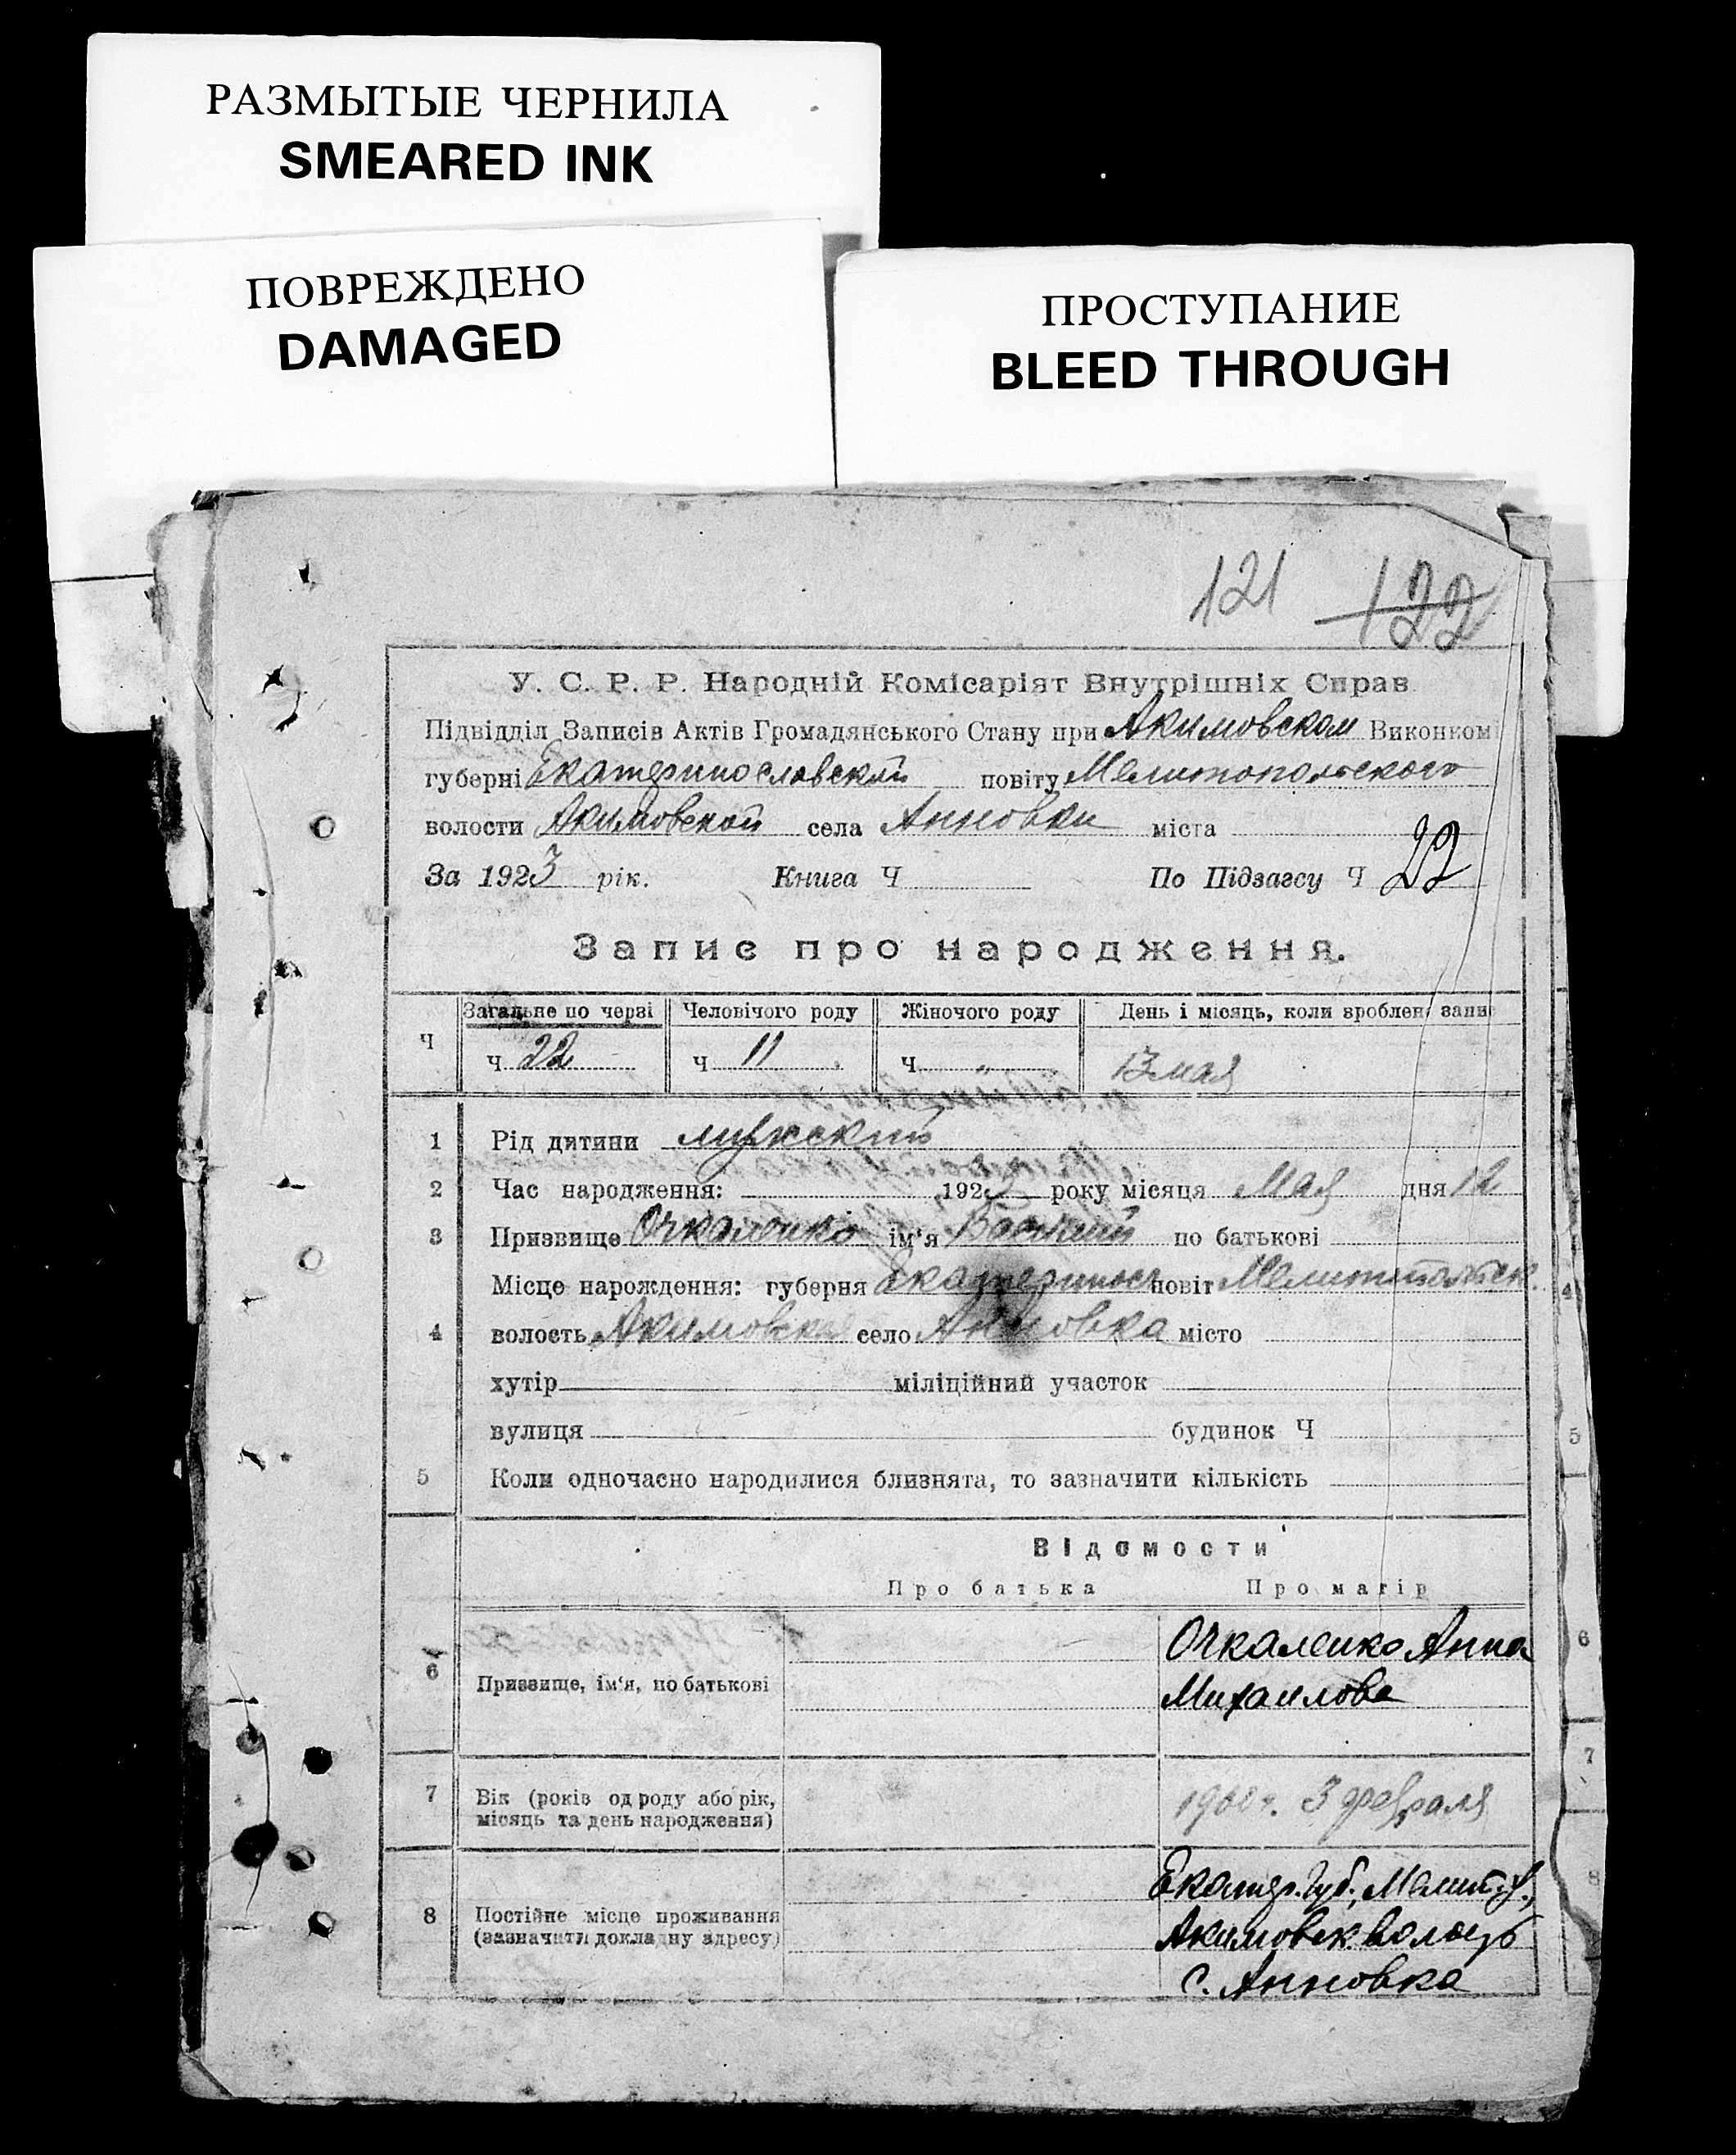 РАЗМЫТЫЕ ЧЕРНИЛА
SMEARED INK
ПОВРЕЖДЕНО
DAMAGED
ПРОСТУПАНИЕ
BLEED THROUGH
121 122
У. С. Р. Р. Народній Комісаріят Внутрішніх Справ
Підвідділ Записів Актів Громадянського Стану при Акимовском Виконкомі
губерні Екатеринославской повіту Мелитопольского
волости Акимовской села Анновки міста
За 1923 рік. Книга Ч По Підзагсу Ч 22
Запис про народження.
Загальне по черзі Человічого роду Жіночого роду День і місяць, коли зроблен запис
Ч Ч 22 Ч 11 Ч „ 13 мая
1 Рід дитини мужский
2 Час народження: 1923 року місяця Мая дня 12
3 Призвище Очкаленко ім'я Василий по батькові
Місце нарождення: губерня Екатериносл повіт Мелитопольск.
4 волость Акимовская село Анновка місто
хутір міліційний участок
вулиця будинок Ч
5 Коли одночасно народилися близнята, то зазначити кількість
Відомости
Про батька Про матір
6 Призвище, ім'я, по батькові Очкаленко Анна
Михаилова
7 Вік (років од роду або рік, місяць та день народження) 1900 г. 3 февраля
8 Постійне місце проживання (зазначити докладну адресу) Екатер. Губ., Мелит. у.,
Акимовск. волость
с. Анновка
4
5
6
7
8